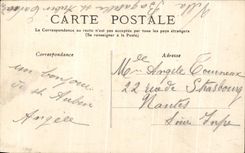 Villa
CARTE POSTALE
La Correspondance au recto n'est pas acceptée par tous les pays étrangers
(Se renseigner à la Poste)
Correspondance
Adresse
un bonjour
de St Aubin
Angèle
Mme Angèle Tourneux
22 rue de Strasbourg
Nantes
Loire Infre